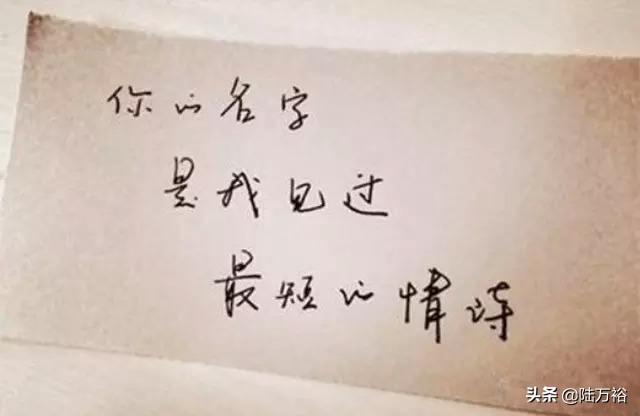 你的名字
是我见过
最短的情诗
头条@陆万裕